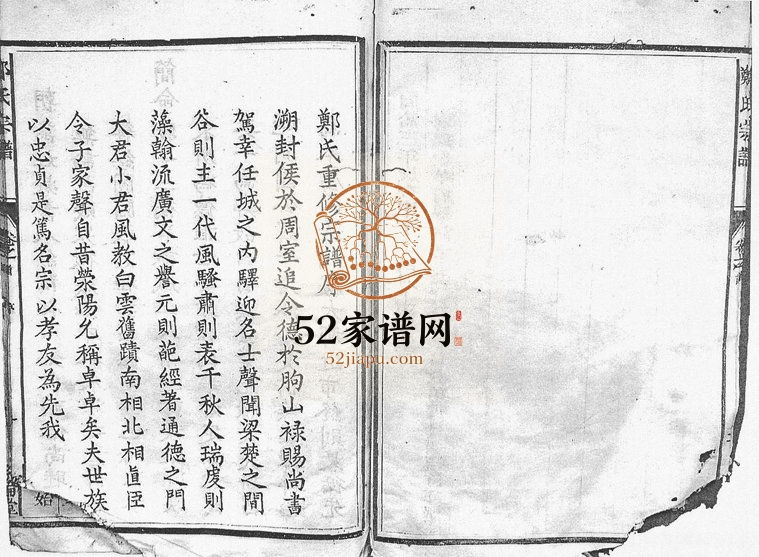 鄭氏宗譜
鄭氏重修宗譜序
溯封侯於周室追令德於朐山禄賜尚書
駕幸任城之内驛迎名士聲聞梁楚之間
谷則主一代風騷肅則表千秋人瑞虔則
藻翰流廣文之譽元則葩經著通德之門
大君小君風教白雲舊蹟南相北相眞臣
令子家聲自昔滎陽允稱卓卓矣夫世族
以忠貞是篤名宗以孝友為先我
始
氏宗譜
52家谱网
52jiapu.com